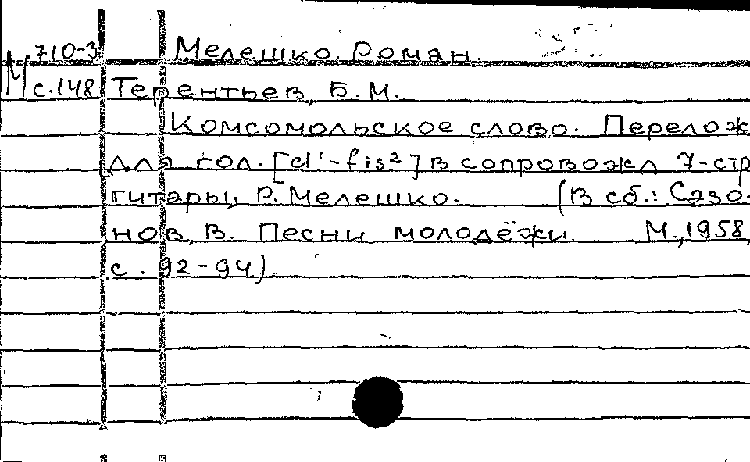 М 710-3 Мелешко, Роман
с.148 Терентьев, Б.М.
Комсомольское слово. Перелож
для гол. [d¹-fis²] в сопровожд 7-стр
гитары, Р. Мелешко. (В сб.: Сазо-
нов, В. Песни молодёжи М., 1958,
с. 92-94)